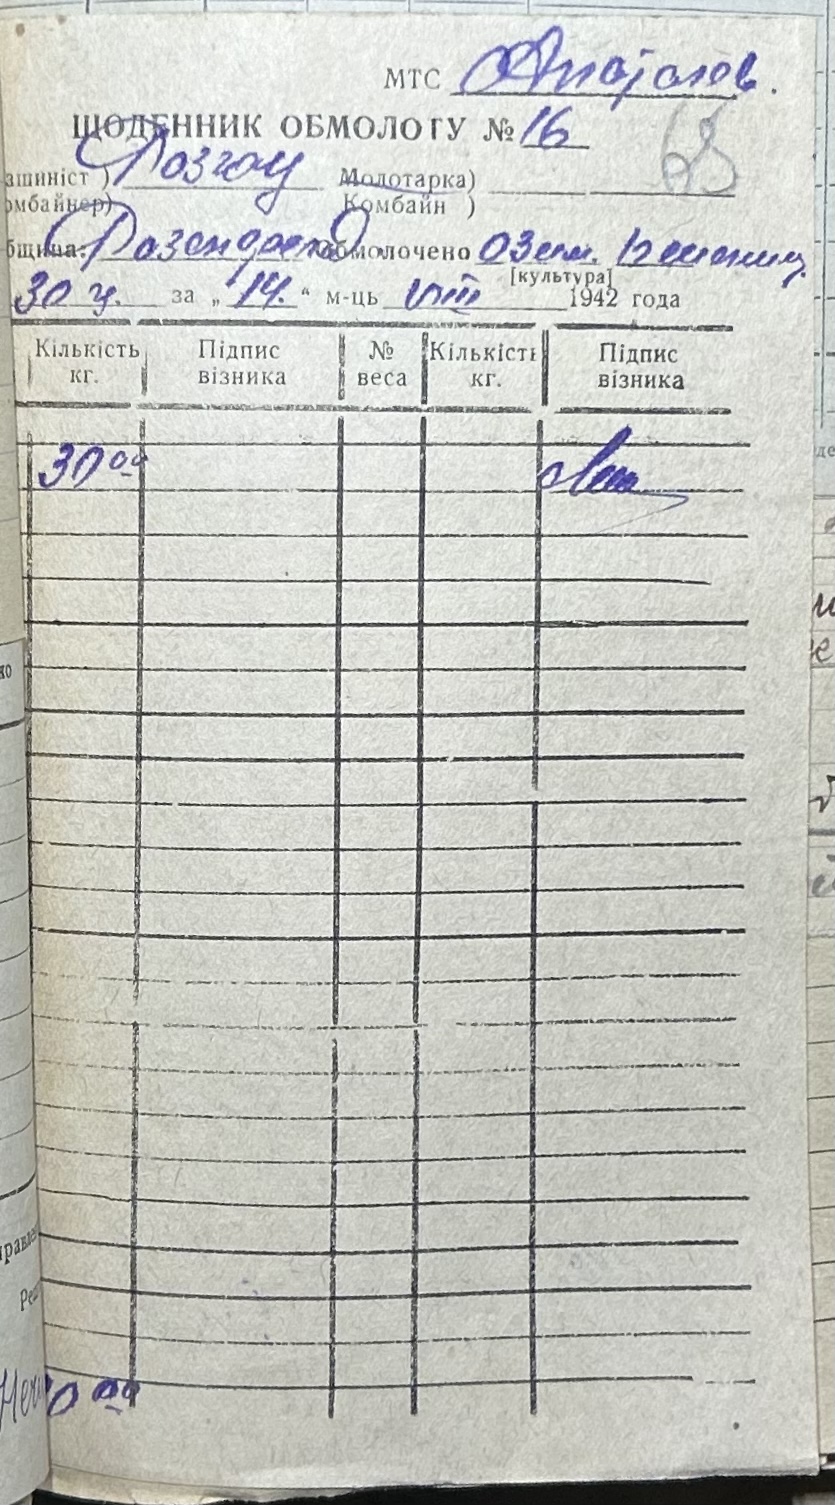 МТС
ЩОДЕННИК ОБМОЛОГУ № 16
68
ашиніст ) Молотарка)
омбайнер) Комбайн )
бщина: Розендорф Обмолочено Озим. Пшениц.
[культура]
30 ц. за „ 14. “ м-ць VIII 1942 года
Кількість кг. Підпис візника № веса Кількість кг. Підпис візника
30 00
0 00